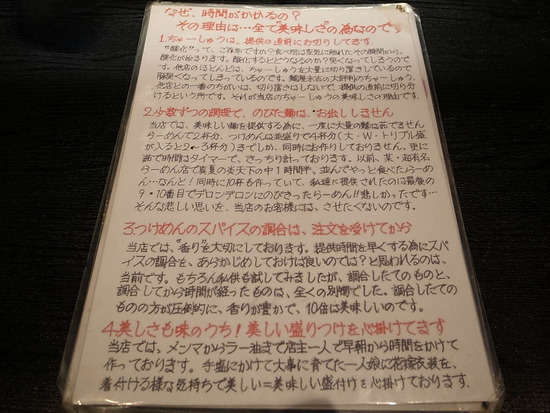 なぜ、時間がかかるの？
その理由は…全て“美味しさ”の為なのです
1.ちゃーしゅうは、提供の直前にお切りしてます
“酸化”って、ご存知ですか？食べ物は空気に触れたその瞬間から、
酸化が始まります。酸化するとどうなるのか？臭くなってしまうのです。
他店のほとんどは、ちゃーしゅうを大量に切り置きしているので
脂臭くなってしまっているのです。麺屋永吉の大評判のちゃーしゅう。
他店との一番のちがいは、切り置きはしないで、提供の直前に切り分
けるという所です。それが当店のちゃーしゅうの美味しさの理由です。
2.少数ずつの調理で、のびた麺は、お出ししません
当店では、美味しい麺を提供する為に、一度に大量の麺は茹でません
らーめんで2杯分、つけめんは並盛りで4杯分(大・W・トリプル盛
が入ると2～3杯分)までしか、同時にお作りしておりません。更に
茹で時間はタイマーで、きっちり計っております。以前、某・超有名
らーめん店で真夏の炎天下の中1時間半、並んでやっと食べたらーめ
ん…なんと！同時に10杯も作っていて、私達に提供されたのは最後の
9・10番目でデロンデロンにのびきったらーめん!!悲しかったです…
そんな悲しい思いを、当店のお客様には、させたくないのです。
3.つけめんのスパイスの調合は、注文を受けてから
当店では、“香り”を大切にしております。提供時間を早くする為にス
パイスの調合を、あらかじめしておけば良いのでは？と思われるのは、
当前です。もちろん私共も試してみましたが、調合したてのものと、
調合してから時間が経ったものは、全くの別物でした。調合したての
ものの方が圧倒的に、香りが豊かで、10倍は美味しいのです。
4.美しさも味のうち！美しい盛りつけを心掛けてます
当店では、メンマからラー油まで店主一人で早朝から時間をかけて
作っております。手塩にかけて大事に育てた一人娘に花嫁衣装を、
着付ける様な気持ちで美しい＝美味しい盛付けを心掛けております.